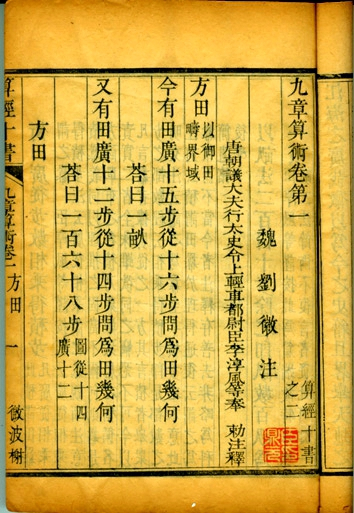 九章算術卷第一
算經十書
之二
魏劉徽注
唐朝議大夫行太史令上輕車都尉臣李淳風等奉 勅注釋
方田 以御田疇界域
今有田廣十五步從十六步問爲田幾何
荅曰一畝
又有田廣十二步從十四步問爲田幾何
荅曰一百六十八步 圖從十四廣十二
方田
算經十書 九章算術卷一 方田 一 微波榭